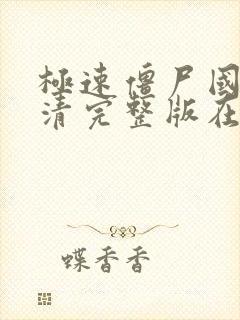 極速僵尸國
清完整版在
蝶香香